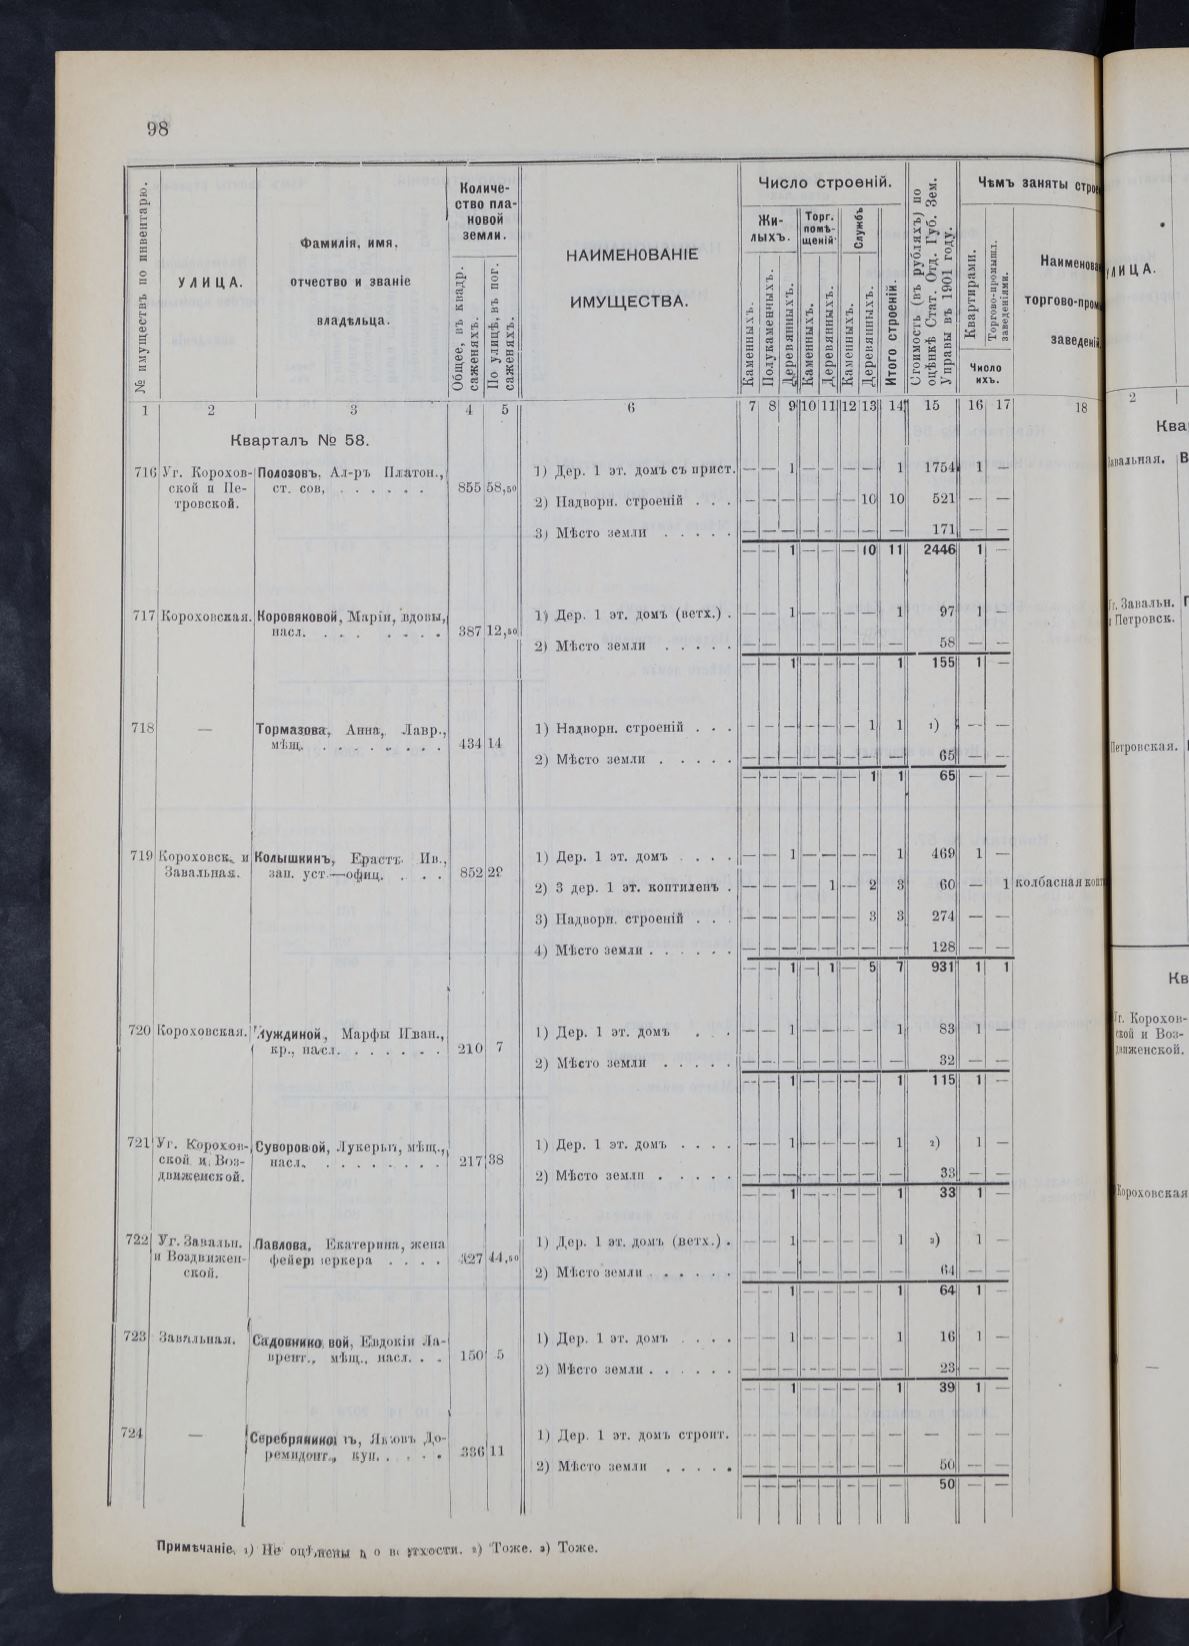 98
№ имуществъ по инвентарю.
УЛИЦА.
Фамилія, имя,
отчество и званіе
владѣльца.
Количе-
ство пла-
новой
земли.
Общее, въ квадр.
саженяхъ.
По улицѣ, въ пог.
саженяхъ.
НАИМЕНОВАНІЕ
ИМУЩЕСТВА.
Число строеній.
Жи-
лыхъ.
Торг.
помѣ-
щеній.
Службъ
Каменныхъ.
Полукаменныхъ.
Деревянныхъ.
Каменныхъ.
Деревянныхъ.
Каменныхъ.
Деревянныхъ.
Итого строеній.
Стоимость (въ рубляхъ) по
оцѣнкѣ Стат. Отд. Губ. Зем.
Управы въ 1901 году.
Чѣмъ заняты строе
Квартирами.
Торгово-промышл.
заведеніями.
Число
ихъ.
Наименова
торгово-пром
заведеній
1 2 3 4 5 6 7 8 9 10 11 12 13 14 15 16 17 18
Кварталъ № 58.
716 Уг. Корохов- Полозовъ, Ал-ръ Платон., 1) Дер. 1 эт. домъ съ прист. — — 1 — — — — 1 1754 1 —
ской и Пе- ст. сов. . . . . . . 855 58,50
тровской. 2) Надворн. строеній . . . — — — — — — 10 10 521 — —
3) Мѣсто земли . . . . . — — — — — — — — 171 — —
— — 1 — — — 10 11 2446 1 —
717 Короховская. Коровяковой, Маріи, вдовы, 1) Дер. 1 эт. домъ (ветх.) . — — 1 — — — — 1 97 1 —
насл. . . . . . . . 387 12,50
2) Мѣсто земли . . . . . — — — — — — — — 58 — —
— — 1 — — — — 1 155 1 —
718 — Тормазова, Анна, Лавр., 1) Надворн. строеній . . . — — — — — — 1 1 1) — —
мѣщ. . . . . . . . . 434 14
2) Мѣсто земли . . . . . — — — — — — — — 65 — —
— — — — — — 1 1 65 — —
719 Короховск. и Колышкинъ, Ерастъ Ив., 1) Дер. 1 эт. домъ . . . . — — 1 — — — — 1 469 1 —
Завальная. зап. уст.—офиц. . . . 852 29
2) 3 дер. 1 эт. коптиленъ . — — — — 1 — 2 3 60 — 1 колбасная копт
3) Надворн. строеній . . . — — — — — — 3 3 274 — —
4) Мѣсто земли . . . . . . — — — — — — — — 128 — —
— — 1 — 1 — 5 7 931 1 1
720 Короховская. Муждиной, Марфы Иван., 1) Дер. 1 эт. домъ . . — — 1 — — — — 1 83 1 —
кр., насл. . . . . . . 210 7
2) Мѣсто земли . . . . . — — — — — — — — 32 — —
— — 1 — — — — 1 115 1 —
721 Уг. Корохов- Суворовой, Лукерьи, мѣщ., 1) Дер. 1 эт. домъ . . . . — — 1 — — — — 1 2) 1 —
ской и Воз- насл. . . . . . . . . 217 38
движенской. 2) Мѣсто земли . . . . . — — — — — — — — 33 — —
— — 1 — — — — 1 33 1 —
722 Уг. Завальн. Павлова, Екатерина, жена 1) Дер. 1 эт. домъ (ветх.) . — — 1 — — — — 1 3) 1 —
и Воздвижен- фейерверкера . . . . 327 44,50
ской. 2) Мѣсто земли . . . . . . — — — — — — — — 64 — —
— — 1 — — — — 1 64 1 —
723 Завальная. Садовниковой, Евдокіи Ла- 1) Дер. 1 эт. домъ . . . . — — 1 — — — — 1 16 1 —
врент., мѣщ., насл. . . 150 5
2) Мѣсто земли . . . . . . — — — — — — — — 23 — —
— — 1 — — — — 1 39 1 —
724 — Серебрянниковъ, Яковъ До- 1) Дер. 1 эт. домъ строит. — — — — — — — — — — —
ремидонт., куп. . . . . 336 11
2) Мѣсто земли . . . . . — — — — — — — — 50 — —
— — — — — — — — 50 — —
Примѣчаніе. 1) Не оцѣнены по ветхости. 2) Тоже. 3) Тоже.
УЛИЦА.
2
Ква
Завальная. В
Уг. Завальн.
и Петровск.
Петровская.
Кв
Уг. Корохов-
ской и Воз-
движенской.
Короховская
—